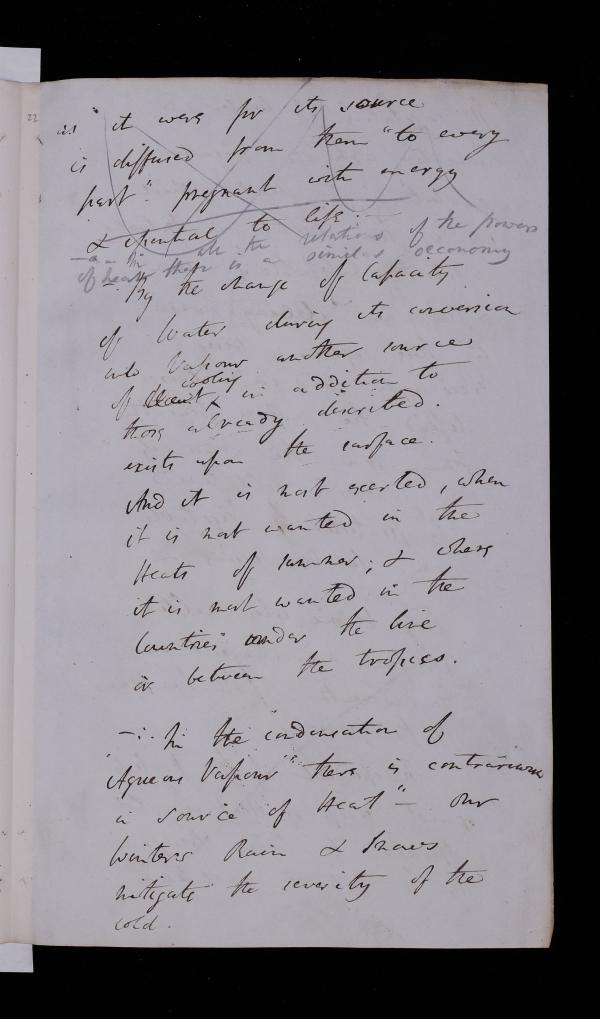 22
as "it were for its source
is diffused from them "to every
part". pregnant with energy
& essential to life. -
- In all the relations of the powers
of heat there is a similar oeconomy
- By the change of Capacity
of Water during its conversion
into Vapour another source
cooling
of Heat in addition to
those already described.
exists upon the surface.
And it is most exerted, when
it is most wanted in the
Heats of summer; & where
it is most wanted in the
Countries under the line
or between the tropics.
-:- In the condensation of
Aqueous Vapour" there is contrariwise
a source of Heat" - our
Winters Rain & Snows
mitigate the severity of the
cold.